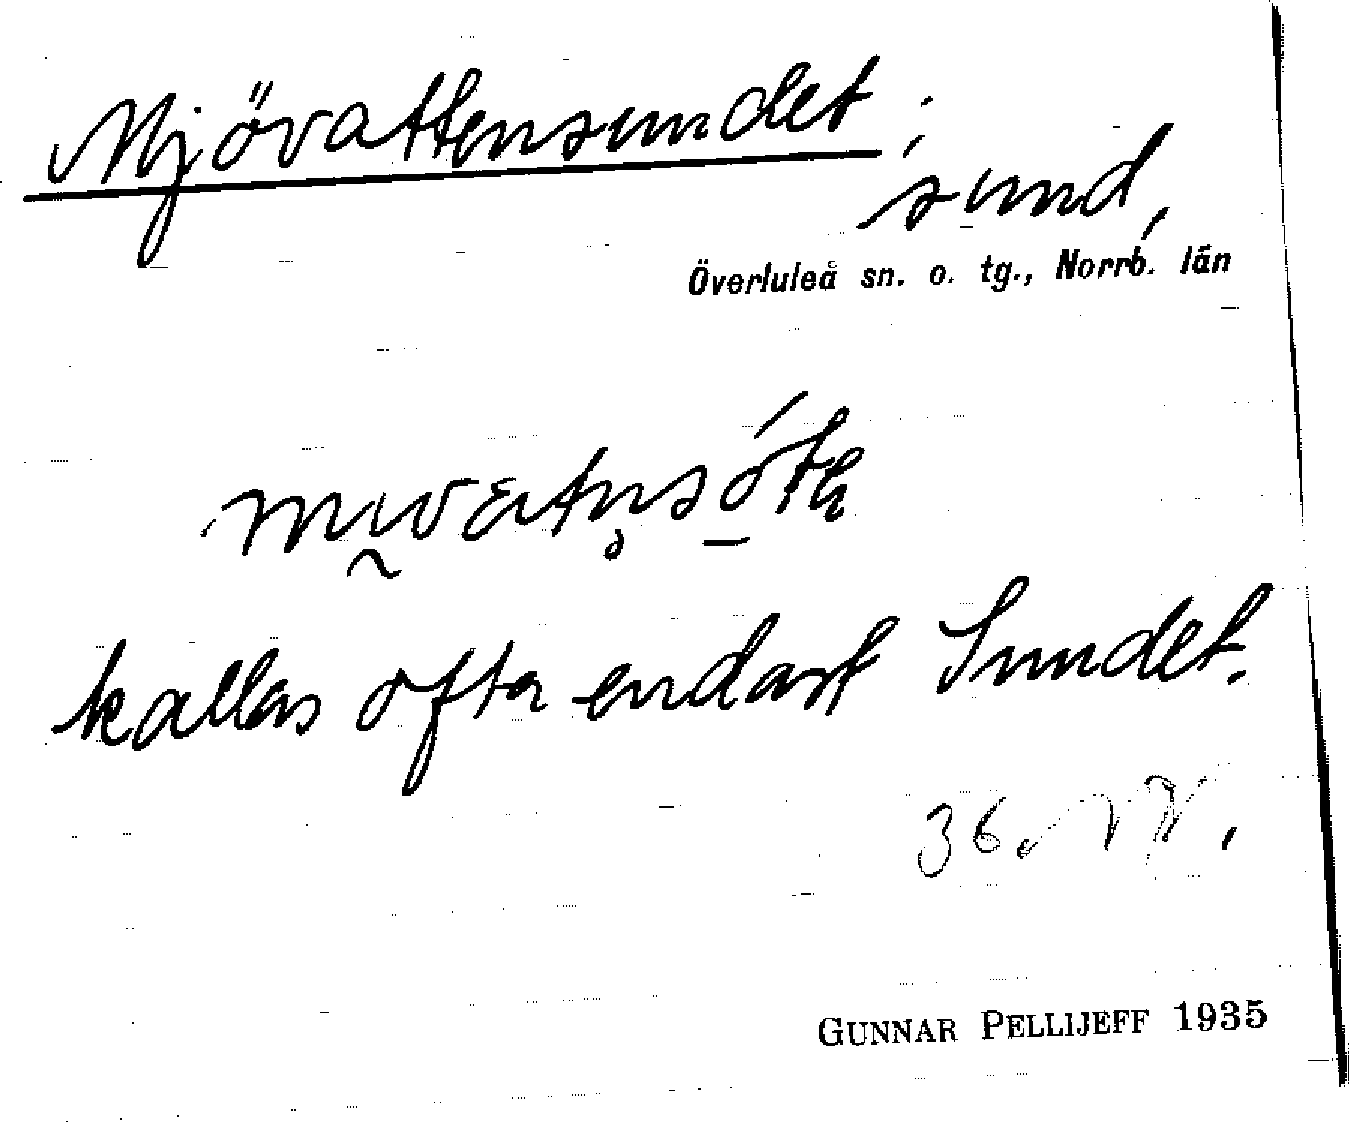 Mjövattensundet;
sund,
Överluleå sn. o. tg., Norrb. län
kallas ofta endast Sundet.
36.
GUNNAR PELLIJEFF 1935